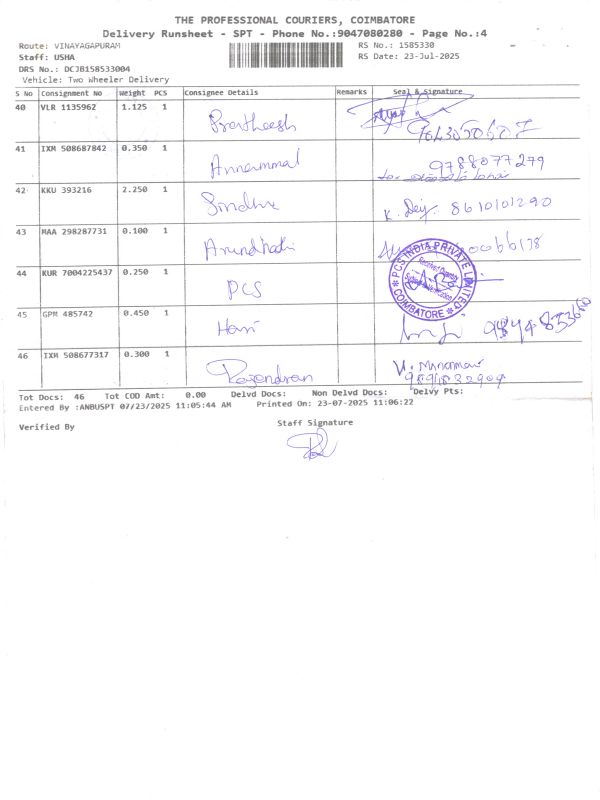 THE PROFESSIONAL COURIERS, COIMBATORE
Delivery Runsheet - SPT - Phone No.:9047080280 - Page No.:4
Route: VINAYAGAPURAM RS No.: 1585330
Staff: USHA RS Date: 23-Jul-2025
DRS No.: DCJB158533004
Vehicle: Two Wheeler Delivery
S No Consignment No Weight PCS Consignee Details Remarks Seal & Signature
40 VLR 1135962 1.125 1 Pratheesh
41 IXM 508687842 0.350 1 Annammal 9788077279
42 KKU 393216 2.250 1 Sindhu K. Dej. 8610101290
43 MAA 298287731 0.100 1 Arundhadi
44 KUR 7004225437 0.250 1 PCS
PCS INDIA PRIVATE LIMITED
COIMBATORE
45 GPM 485742 0.450 1 Hari
46 IXM 508677317 0.300 1 Rajendran
Tot Docs: 46 Tot COD Amt: 0.00 Delvd Docs: Non Delvd Docs: Delvy Pts:
Entered By :ANBUSPT 07/23/2025 11:05:44 AM Printed On: 23-07-2025 11:06:22
Verified By Staff Signature